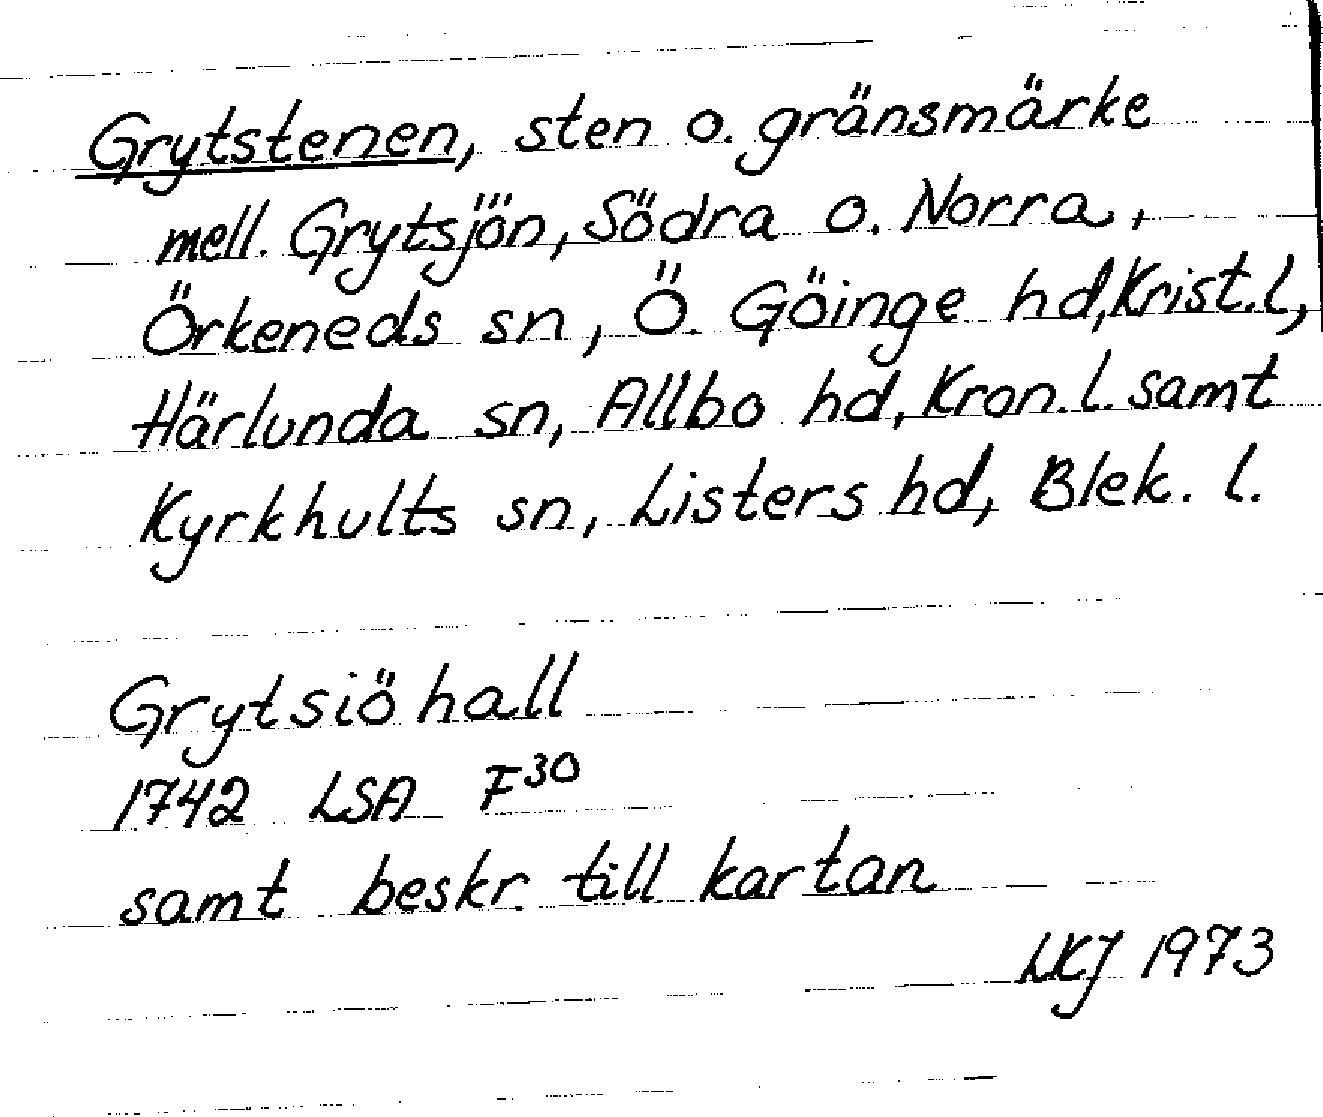 Grytstenen, sten o. gränsmärke
mell. Grytsjön, Södra o. Norra,
Örkeneds sn, Ö. Göinge hd, Krist. l,
Härlunda sn, Allbo hd, Kron. l. samt
Kyrkhults sn, Listers hd, Blek. l.
Grytsiö hall
1742 LSA F30
samt beskr. till kartan
LKJ 1973